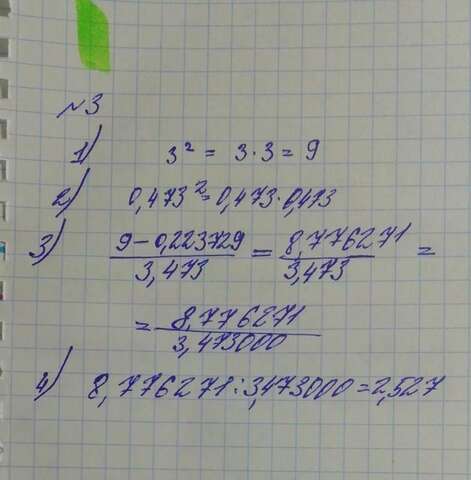 №3
1) 3² = 3·3 = 9
2) 0,473² = 0,473·0,473
3) (9-0,223729)/3,473 = 8,776271/3,473 =
= 8,776271/3,473000
4) 8,776271:3,473000=2,527